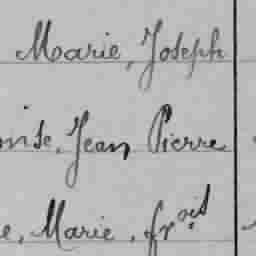 Marie, Joseph
Jean Pierre
Marie, frois